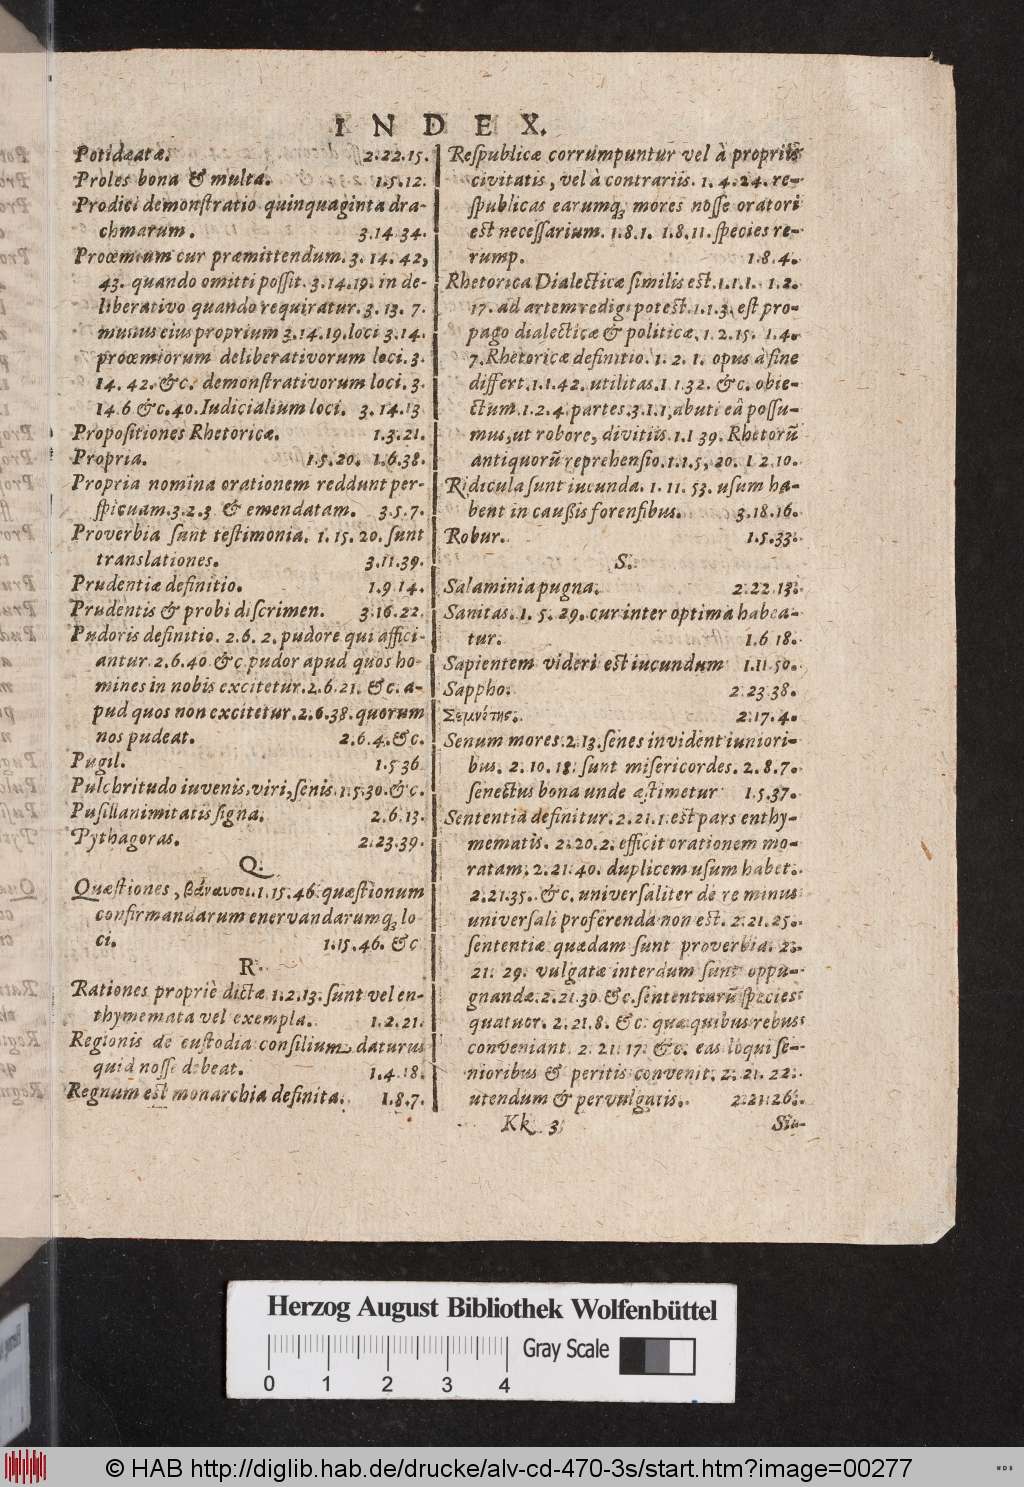 INDEX.
Potidæatæ. 2.22.15.
Proles bona & multa. 1.5.12.
Prodici demonſtratio quinquaginta dra-
chmarum. 3.14.34.
Proœmium cur præmittendum. 3. 14. 42,
43. quando omitti poſſit. 3.14.19. in de-
liberativo quando requiratur. 3. 13. 7.
munus eius proprium 3.14.19. loci 3.14.
proœmiorum deliberativorum loci. 3.
14. 42. &c. demonſtrativorum loci. 3.
14.6 &c.40. Iudicialium loci. 3.14.13
Propoſitiones Rhetoricæ. 1.3.21.
Propria. 1.5.20. 1.6.38.
Propria nomina orationem reddunt per-
ſpicuam.3.2.3 & emendatam. 3.5.7.
Proverbia ſunt teſtimonia. 1. 15. 20. ſunt
translationes. 3.11.39.
Prudentiæ definitio. 1.9.14.
Prudentis & probi diſcrimen. 3.16.22.
Pudoris definitio. 2.6. 2. pudore qui affici-
antur. 2.6.40 &c pudor apud quos ho-
mines in nobis excitetur. 2.6.21. &c. a-
pud quos non excitetur. 2.6.38. quorum
nos pudeat. 2.6.4. &c.
Pugil. 1.5 36
Pulchritudo iuvenis, viri, ſenis. 1.5.30. &c.
Puſillanimitatis ſigna. 2.6.13.
Pythagoras. 2.23.39.
Q.
Quæſtiones, βάναυσοι. 1.15.46. quæſtionum
confirmandarum enervandarumq; lo
ci. 1.15.46. &c
R.
Rationes propriè dictæ 1.2.13. ſunt vel en-
thymemata vel exempla. 1.2.21.
Regionis de cuſtodia conſilium daturus
quid noſſe debeat. 1.4.18.
Regnum eſt monarchia definita. 1.8.7.
Reſpublicæ corrumpuntur vel à propriis
civitatis, vel à contrariis. 1. 4. 24. re-
ſpublicas earumq; mores noſſe oratori
eſt neceſſarium. 1.8.1. 1.8.11. ſpecies re-
rump. 1.8.4.
Rhetorica Dialecticæ ſimilis eſt. 1.1.1. 1.2.
17. ad artem redigi poteſt. 1.1.3. eſt pro-
pago dialecticæ & politicæ, 1. 2. 15. 1.4.
7. Rhetoricæ definitio. 1. 2. 1. opus à fine
differt. 1.1.42. utilitas. 1 1.32. &c. obie-
ctum. 1.2.4. partes. 3.1.1, abuti eâ poſſu-
mus, ut robore, divitiis. 1.1 39. Rhetorũ
antiquorũ reprehenſio. 1.1.5, 20. 1 2.10.
Ridicula ſunt iucunda. 1. 11. 53. uſum ha-
bent in cauſsis forenſibus. 3.18.16.
Robur. 1.5.33.
S.
Salaminia pugna. 2.22.13.
Sanitas. 1. 5. 29. cur inter optima habea-
tur. 1.6 18.
Sapientem videri eſt iucundum 1.11.50.
Sappho. 2.23.38.
Σεμνότης. 2.17.4.
Senum mores. 2.13. ſenes invident iuniori-
bus. 2. 10. 18. ſunt miſericordes. 2. 8. 7.
ſenectus bona unde æſtimetur 1.5.37.
Sententia definitur. 2.21.1. eſt pars enthy-
mematis. 2.20.2. efficit orationem mo-
ratam. 2. 21. 40. duplicem uſum habet.
2.21.35. &c. univerſaliter de re minus
univerſali proferenda non eſt. 2.21.25.
ſententiæ quædam ſunt proverbia. 2.
21. 29. vulgatæ interdum ſunt oppu-
gnandæ. 2.21.30 &c. ſententiarũ ſpecies
quatuor. 2. 21.8. &c. quæ quibus rebus
conveniant. 2. 21. 17. &c. eas loqui ſe-
nioribus & peritis convenit. 2. 21. 22.
utendum & pervulgatis. 2.21.26.
Kk 3 Sin-
Herzog August Bibliothek Wolfenbüttel
Gray Scale
0 1 2 3 4
© HAB http://diglib.hab.de/drucke/alv-cd-470-3s/start.htm?image=00277